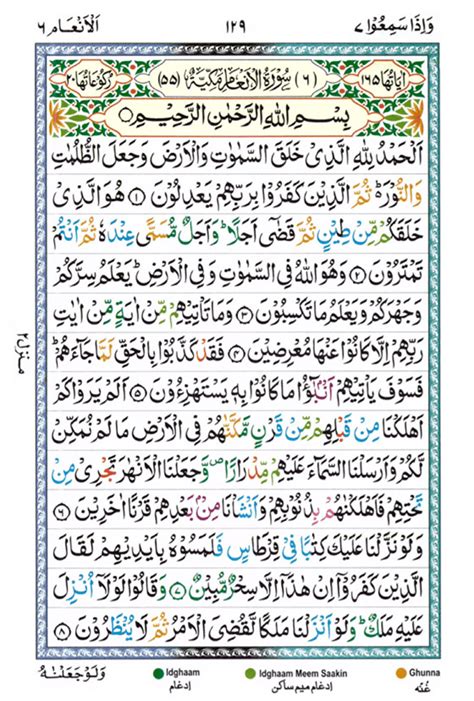 وَاِذَا سَمِعُوْا ٧ ١٢٩ اَلْاَنْعَام ٦
اٰيَاتُهَا ١٦٥ (٦) سُوْرَةُ الْاَنْعَامِ مَكِّيَّةٌ (٥٥) رُكُوْعَاتُهَا ٢٠
بِسْمِ اللّٰهِ الرَّحْمٰنِ الرَّحِيْمِ
اَلْحَمْدُ لِلّٰهِ الَّذِيْ خَلَقَ السَّمٰوٰتِ وَالْاَرْضَ وَجَعَلَ الظُّلُمٰتِ
وَالنُّوْرَ ۬ؕ ثُمَّ الَّذِيْنَ كَفَرُوْا بِرَبِّهِمْ يَعْدِلُوْنَ ١ هُوَ الَّذِيْ
خَلَقَكُمْ مِّنْ طِيْنٍ ثُمَّ قَضٰۤى اَجَلًا ؕ وَاَجَلٌ مُّسَمًّى عِنْدَهٗ ثُمَّ اَنْتُمْ
تَمْتَرُوْنَ ٢ وَهُوَ اللّٰهُ فِي السَّمٰوٰتِ وَفِي الْاَرْضِ ؕ يَعْلَمُ سِرَّكُمْ
وَجَهْرَكُمْ وَيَعْلَمُ مَا تَكْسِبُوْنَ ٣ وَمَا تَاْتِيْهِمْ مِّنْ اٰيَةٍ مِّنْ اٰيٰتِ
رَبِّهِمْ اِلَّا كَانُوْا عَنْهَا مُعْرِضِيْنَ ٤ فَقَدْ كَذَّبُوْا بِالْحَقِّ لَمَّا جَآءَهُمْ ؕ
فَسَوْفَ يَاْتِيْهِمْ اَنْۢبٰٓؤُا مَا كَانُوْا بِهٖ يَسْتَهْزِءُوْنَ ٥ اَلَمْ يَرَوْا كَمْ
اَهْلَكْنَا مِنْ قَبْلِهِمْ مِّنْ قَرْنٍ مَّكَّنّٰهُمْ فِي الْاَرْضِ مَا لَمْ نُمَكِّنْ
لَّكُمْ وَاَرْسَلْنَا السَّمَآءَ عَلَيْهِمْ مِّدْرَارًا ۪ وَّجَعَلْنَا الْاَنْهٰرَ تَجْرِيْ مِنْ
تَحْتِهِمْ فَاَهْلَكْنٰهُمْ بِذُنُوْبِهِمْ وَاَنْشَاْنَا مِنْۢ بَعْدِهِمْ قَرْنًا اٰخَرِيْنَ ٦
وَلَوْ نَزَّلْنَا عَلَيْكَ كِتٰبًا فِيْ قِرْطَاسٍ فَلَمَسُوْهُ بِاَيْدِيْهِمْ لَقَالَ
الَّذِيْنَ كَفَرُوْۤا اِنْ هٰذَاۤ اِلَّا سِحْرٌ مُّبِيْنٌ ٧ وَقَالُوْا لَوْلَاۤ اُنْزِلَ
عَلَيْهِ مَلَكٌ ؕ وَلَوْ اَنْزَلْنَا مَلَكًا لَّقُضِيَ الْاَمْرُ ثُمَّ لَا يُنْظَرُوْنَ ٨
منزل ٢
وَلَوْ جَعَلْنٰهُ
Idghaam Idghaam Meem Saakin Ghunna
ادغام ادغام میم ساکن غنّه